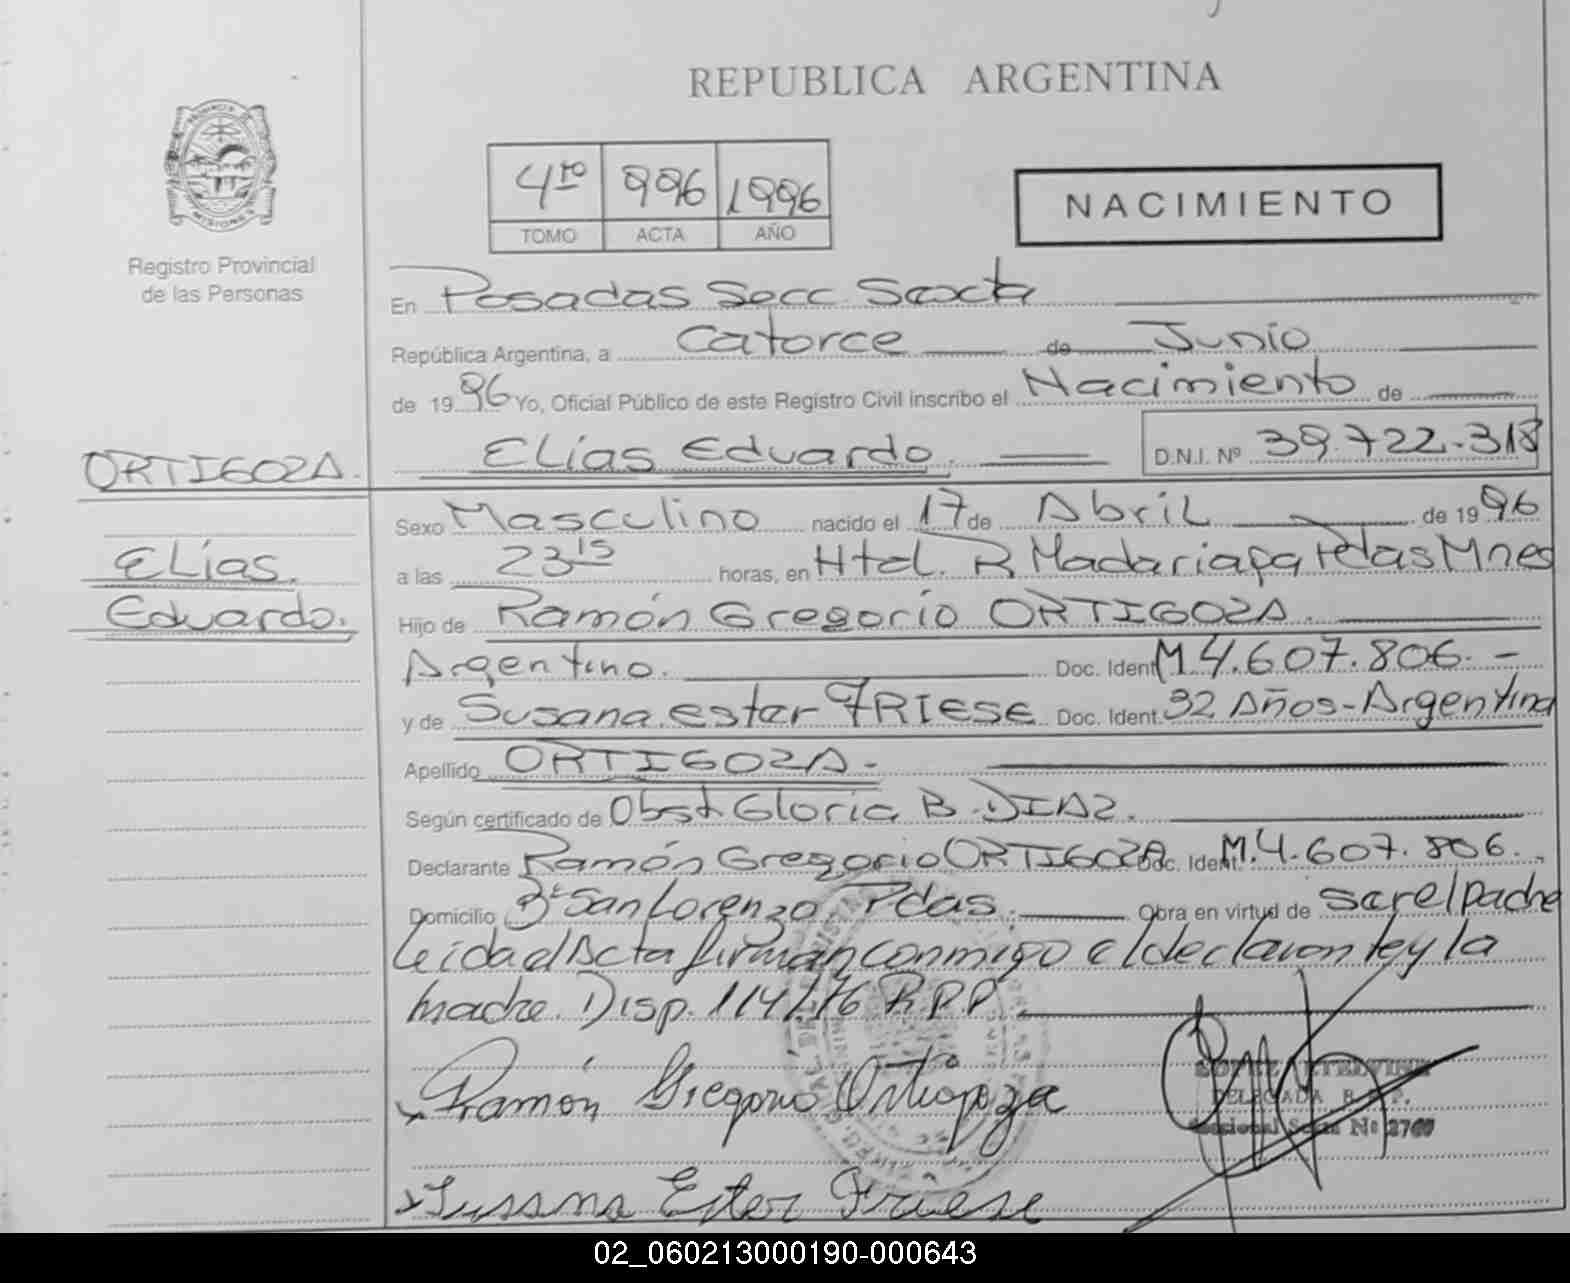 REPUBLICA ARGENTINA
PROVINCIA DE
MISIONES
Registro Provincial
de las Personas
4ro 996 1996
TOMO ACTA AÑO
NACIMIENTO
En Posadas Secc. Sexta
República Argentina, a Catorce de Junio
de 1996 Yo, Oficial Público de este Registro Civil inscribo el Nacimiento de
Elías Eduardo. D.N.I. Nº 39.722.318
ORTIGOZA.
Elías.
Eduardo.
Sexo Masculino nacido el 17 de Abril de 1996
a las 23 15 horas, en Htal. R. Madariaga Pdas Mnes
Hijo de Ramón Gregorio ORTIGOZA.
Argentino. Doc. Ident. M 4.607.806.-
y de Susana ester FRIESE Doc. Ident. 32 Años-Argentina
Apellido ORTIGOZA.-
Según certificado de Obst. Gloria B. DIAZ.
Declarante Ramón Gregorio ORTIGOZA Doc. Ident. M.4.607.806.
Domicilio Bº San Lorenzo, Pdas. Obra en virtud de ser el padre
leida el Acta firman conmigo el declarante y la
madre. Disp. 114/76 R.P.P.
Ramón Gregorio Ortigoza
DELEGADA R.P.P.
Seccional Sexta Nº 2760
Susana Ester Friese
02_060213000190-000643